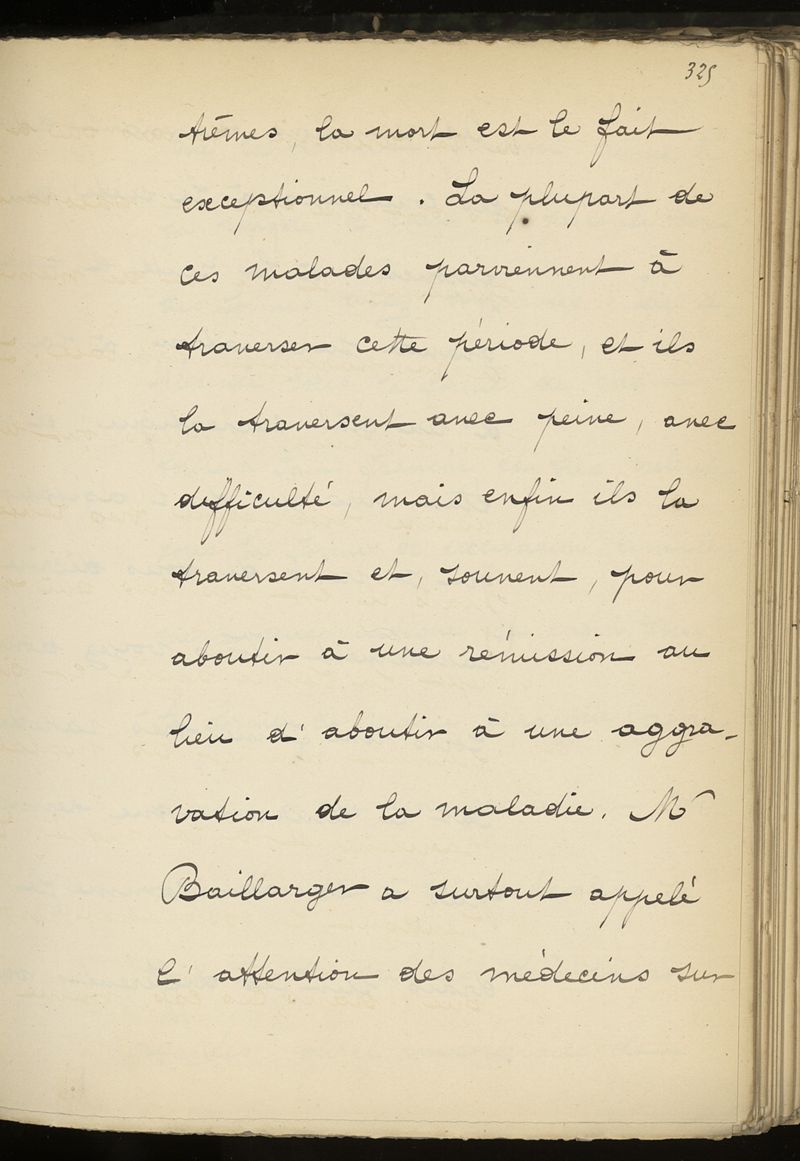 325
trêmes, la mort est le fait
exceptionnel. La plupart de
ces malades parviennent à
traverser cette période, et ils
la traversent avec peine, avec
difficulté, mais enfin ils la
traversent et, souvent, pour
aboutir à une rémission au
lieu d'aboutir à une aggra-
vation de la maladie. Mr
Baillarger a surtout appelé
l'attention des médecins sur